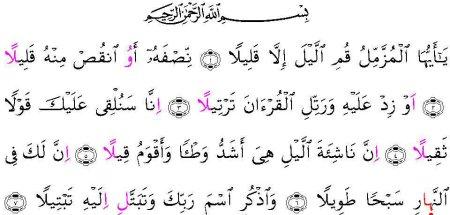 بِسْمِ ٱللَّهِ ٱلرَّحْمَٰنِ ٱلرَّحِيمِ
يَٰٓأَيُّهَا ٱلْمُزَّمِّلُ قُمِ ٱلَّيْلَ إِلَّا قَلِيلًا ۝١ نِّصْفَهُۥٓ أَوُ ٱنقُصْ مِنْهُ قَلِيلًا
۝٢ اَوْ زِدْ عَلَيْهِ وَرَتِّلِ ٱلْقُرْءَانَ تَرْتِيلًا ۝٣ اِنَّا سَنُلْقِى عَلَيْكَ قَوْلًا
ثَقِيلًا ۝٤ اِنَّ نَاشِئَةَ ٱلَّيْلِ هِىَ أَشَدُّ وَطْـًٔا وَأَقْوَمُ قِيلًا ۝٥ اِنَّ لَكَ فِى
ٱلنَّهارِ سَبْحًا طَوِيلًا ۝٦ وَٱذْكُرِ ٱسْمَ رَبِّكَ وَتَبَتَّلِ اِلَيْهِ تَبْتِيلًا ۝٧